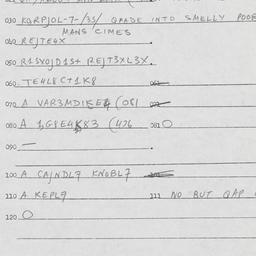 030 KQRPJOL-7-/3S/ QPADE INTO SMELLY POOE
MANS CIMES
040 REJTE4X
050 R1SYOJD1S+ REJT3XL3X.
060 TEHL8CT1K8
070 A VAR3MDIKE4 (081
080 A 1,GPE4K83 (476 081 O
090 —
100 A CAJNDL7 KNOBL7
110 A KEPL9 111 NO BUT QAP
120 O